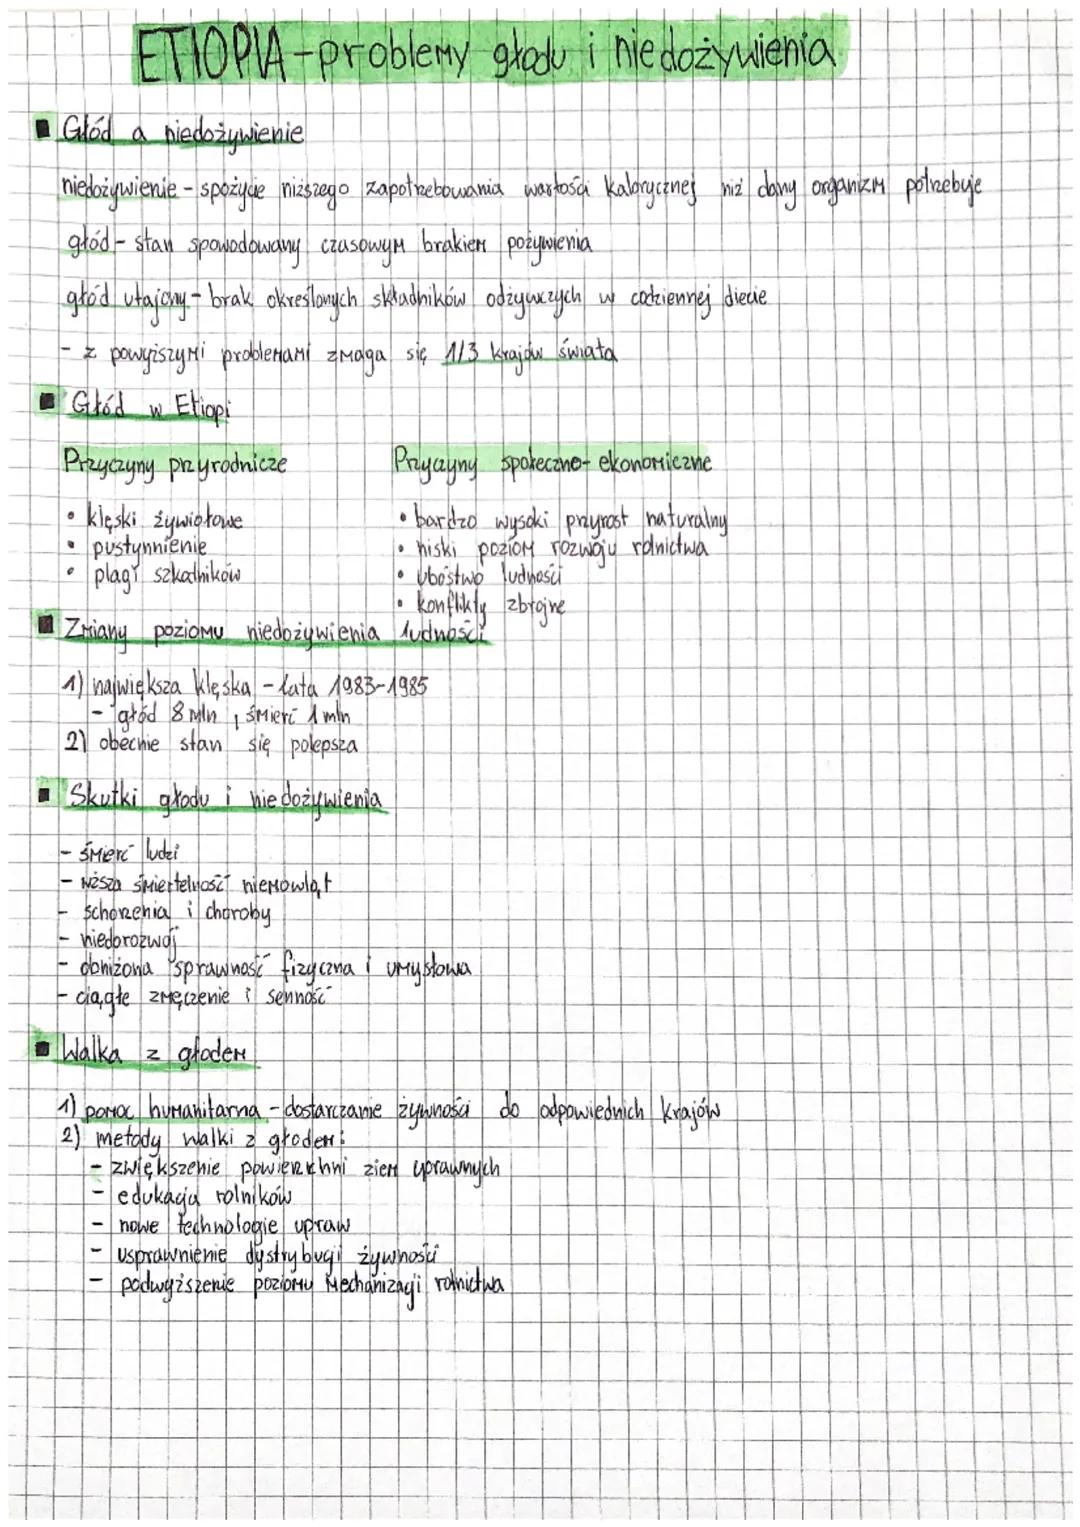 ETIOPIA - problemy głodu i niedożywienia
Głód a niedożywienie
niedożywienie - spożycie niższego zapotrzebowania wartości kalorycznej niż dany organizm potrzebuje
głód - stan spowodowany czasowym brakiem pożywienia
głód utajony - brak określonych składników odżywczych w codziennej diecie
- z powyższymi problemami zmaga się 1/3 krajów świata
Głód w Etiopi
Przyczyny przyrodnicze Przyczyny społeczno-ekonomiczne
• klęski żywiołowe • bardzo wysoki przyrost naturalny
• pustynnienie • niski poziom rozwoju rolnictwa
• plagi szkodników • ubóstwo ludności
• konflikty zbrojne
Zmiany poziomu niedożywienia ludności
1) największa klęska - lata 1983-1985
- głód 8 mln, śmierć 1 mln
2) obecnie stan się polepsza
Skutki głodu i niedożywienia
- śmierć ludzi
- śmiertelność niemowląt
- schorzenia i choroby
- niedorozwój
- obniżona sprawność fizyczna i umysłowa
- ciągłe zmęczenie i senność
Walka z głodem
1) pomoc humanitarna - dostarczanie żywności do odpowiednich krajów
2) metody walki z głodem:
- zwiększenie powierzchni ziem uprawnych
- edukacja rolników
- nowe technologie upraw
- usprawnienie dystrybucji żywności
- podwyższenie poziomu mechanizacji rolnictwa